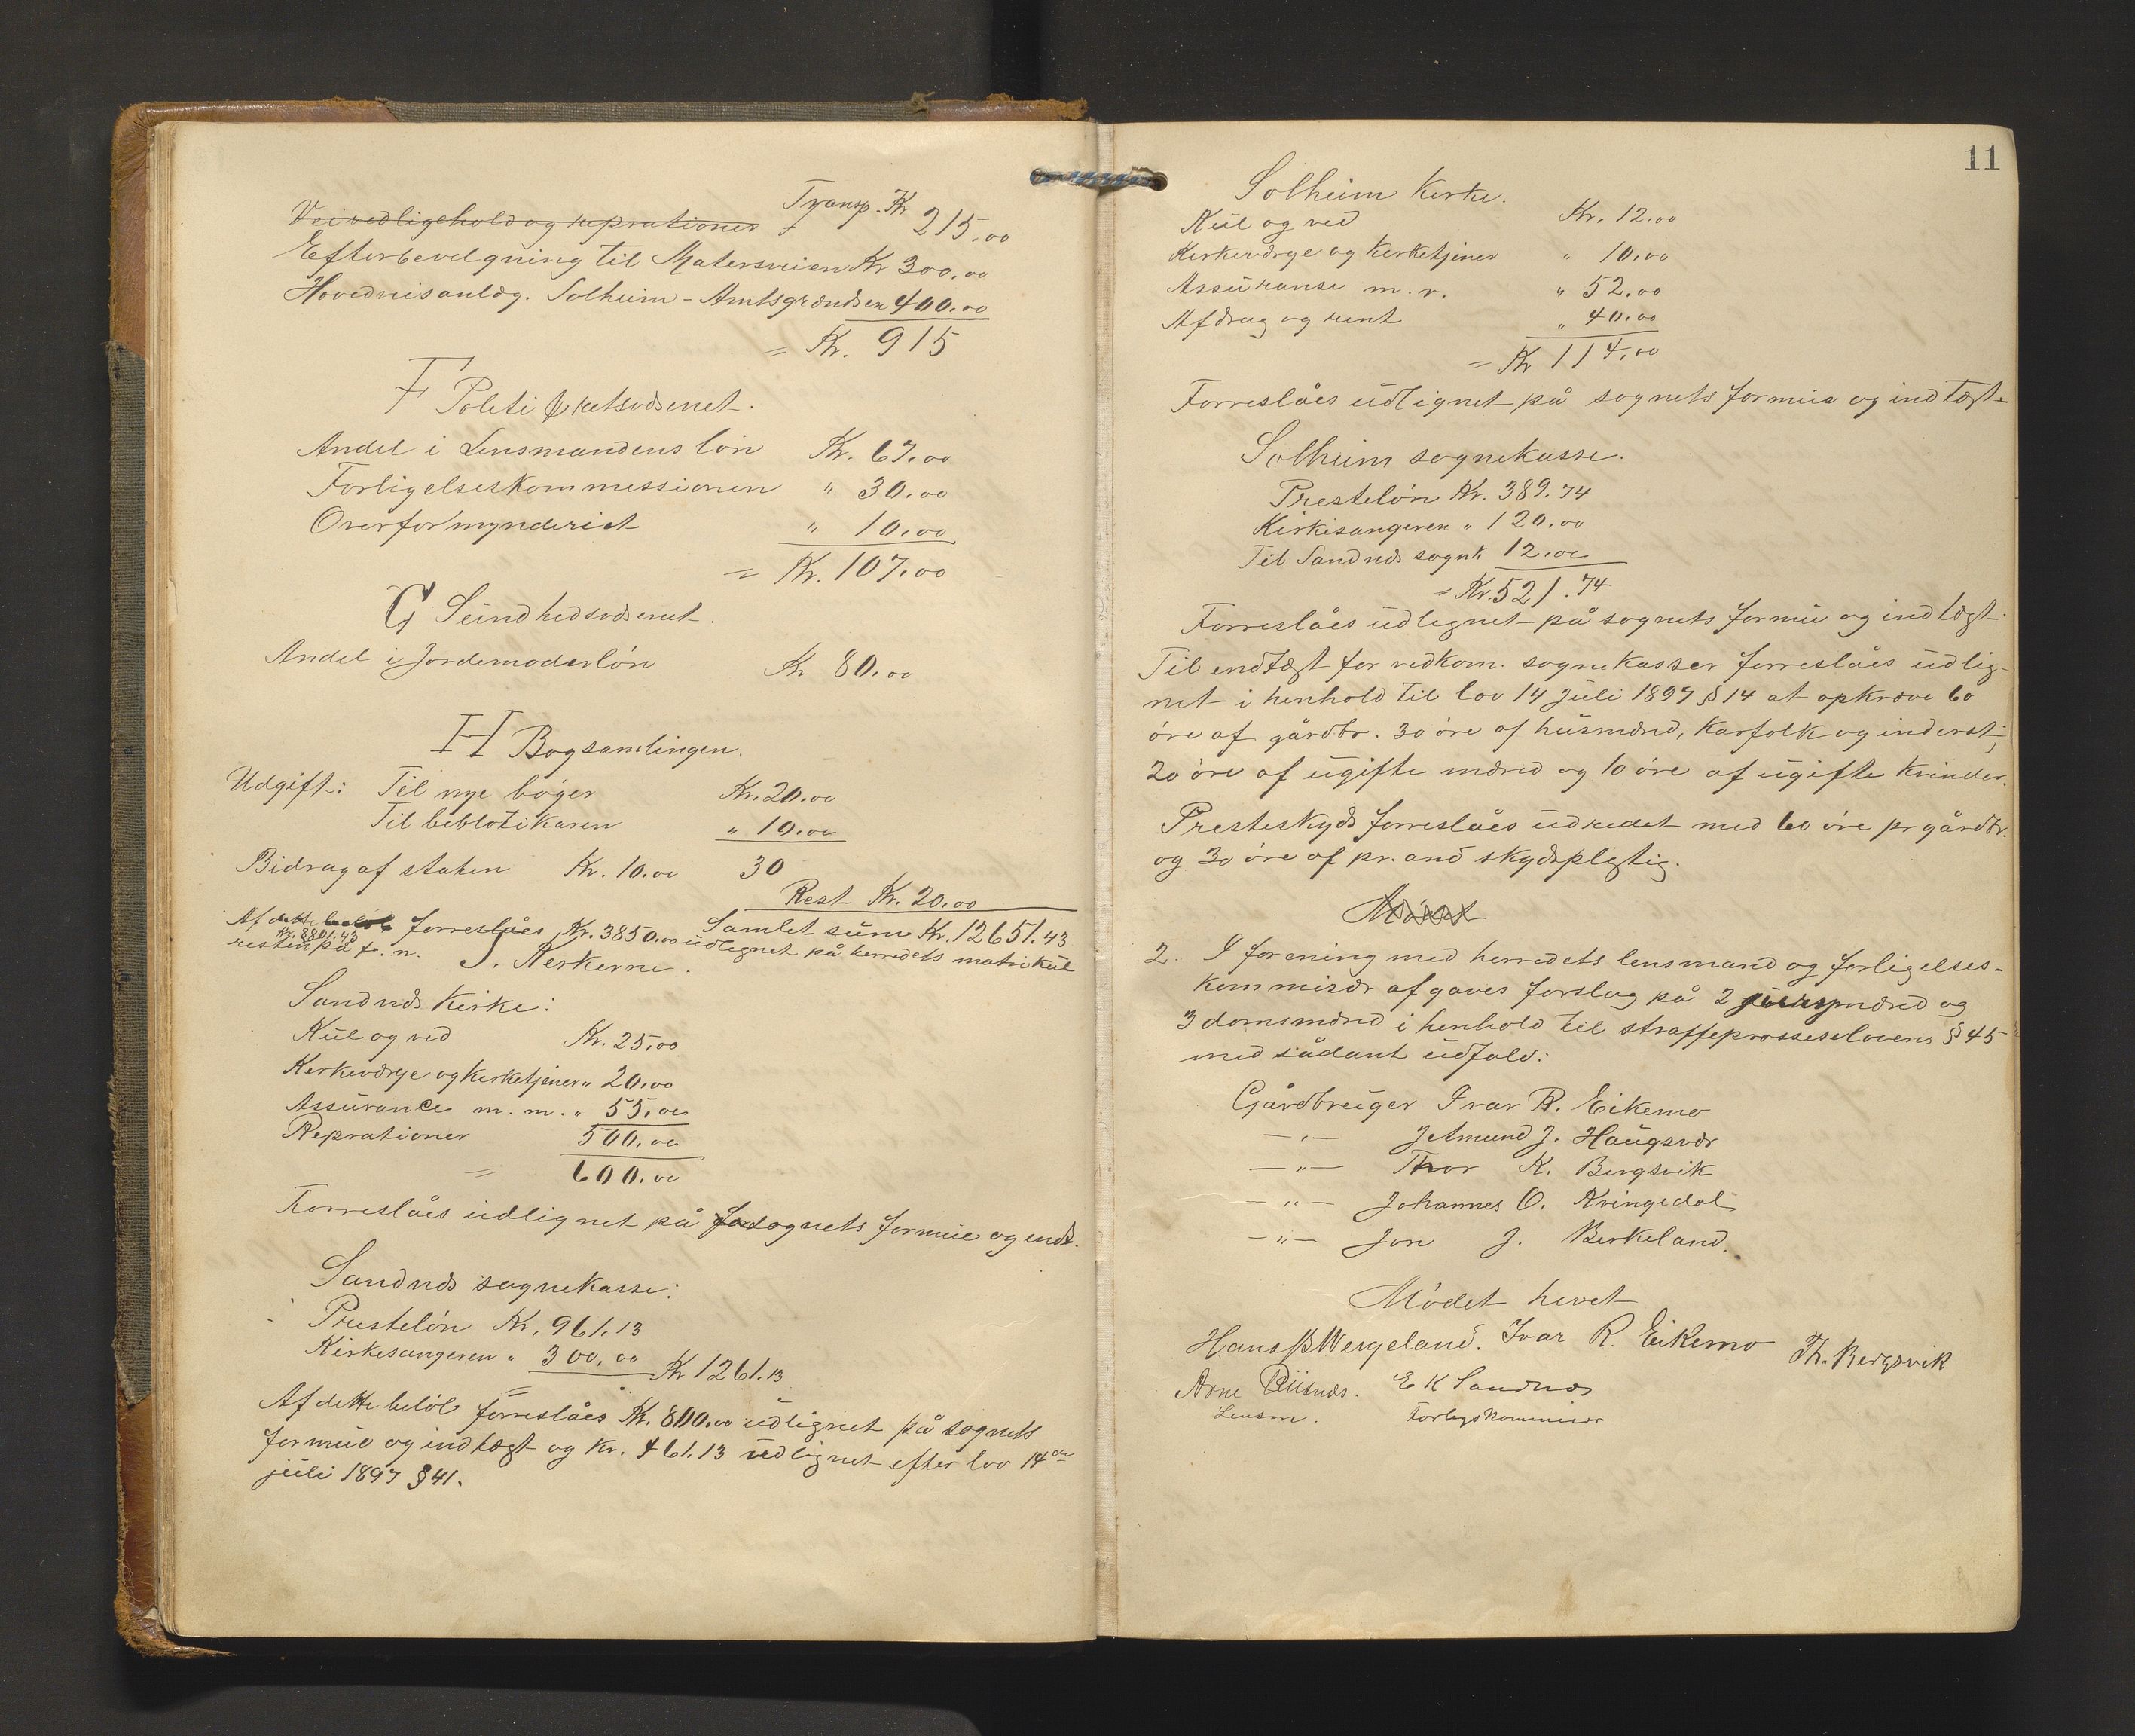 Transp. Kr 215,00
Veivedligehold og reprationer
Efterbevelgning til Matersveien Kr 300,00
Hovedveisanlæg. Solheim - Amtsgrændsen 400.00
= Kr. 915
F Politi & retsvæsenet.
Andel i Lensmandens løn Kr. 67.00
Forligelseskommessionen " 30.00
Overformynderiet " 10.00
= Kr. 107.00
G Sundhedsvæsenet.
Andel i Jordemoderløn Kr 80.00
H Bogsamlingen.
Udgift: Til nye bøger Kr. 20.00
Til beblotikaren " 10.00
Bidrag af staten Kr. 10.00 30
Rest Kr. 20.00
Samlet sum Kr. 12651.43
Af dette beløb forreslåes Kr. 3850.00 udlignet på herredets matrikul
Kr. 8801.43
resten på f. n.
J. Kerkerne.
Sandnæs Kirke:
Kul og ved Kr. 25,00
Kerkeværge og Kerketjener " 20.00
Assurance m. m. " 55,00
Reprationer 500.00
= 600.00
Forreslåes udlignet på sognets formue og indt.
Sandnæs sognekasse:
Presteløn Kr. 961.13
Kirkesangeren " 300.00 Kr 1261.13
Af dette beløb forreslåes Kr. 800.00 udlignet på sognets
formue og indtægt og Kr. 461.13 udlignet efter lov 14de
juli 1897 § 41.
11
Solheim Kerke.
Kul og ved Kr. 12.00
Kerkeværge og Kerketjener " 10.00
Assuranse m. v. " 52.00
Afdrag og rent " 40.00
= Kr 114.00
Forreslåes udlignet på sognets formue og indtægt.
Solheim sognekasse.
Presteløn Kr. 389.74
Kirkesangeren " 120.00
Til Sandnæs sognk 12.00
= Kr. 521.74
Forreslåes udlegnet på sognets formue og indtægt.
Til endtægt for vedkom. sognekasser forreslåes udlig-
net i henhold til lov 14 Juli 1897 § 14 at opkræve 60
øre af gårdbr. 30 øre af husmænd, Karfolk og inderst;
20 øre af ugifte mænd og 10 øre af ugifte Kvinder.
Presteskyds forreslåes udredet med 60 øre pr gårdbr.
og 30 øre af pr. and skydspligtig.
Mødet
2. I forening med herredets lensmand og forligelses-
Kommisær afgaves forslag på 2 jurymænd og
3 domsmænd i henhold til straffeprosseslovens § 45
med sådant udfald:
Gårdbruger Ivar R. Eikemo
— " — Jetmund J. Haugsvær
— " — Thor K. Bergsvik
— " — Johannes O. Kvingedal
— " — Jon J. Berkeland.
Mødet hevet
Hans B Wergeland. Ivar R. Eikemo Th. Bergsvik
Arne Riisnæs. E K Sandnæs
Lensm. Forlegskommisær